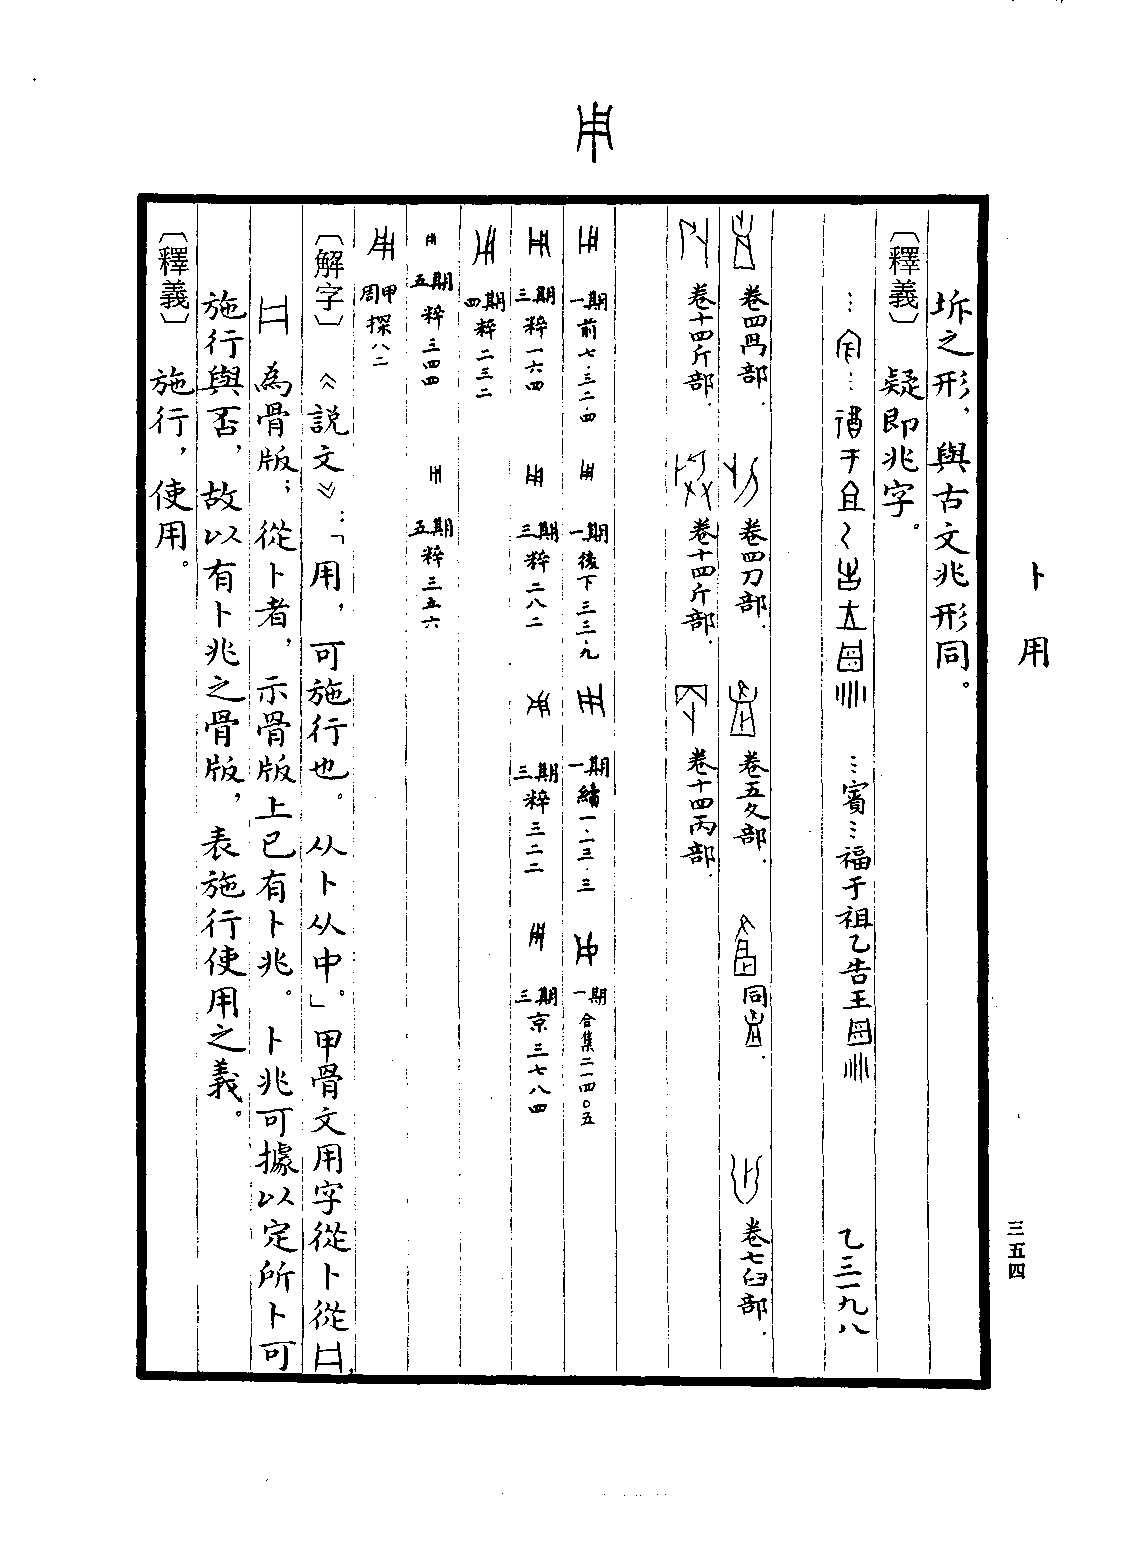 卜用
三五四
坼之形，與古文兆形同。
〔釋義〕疑即兆字。
…賓…福于祖乙告王
乙三一九八
卷四冎部．
卷四刀部．
卷五夊部．
同
卷七臼部．
卷十四斤部．
卷十四斤部．
卷十四丙部．
一期前七·三二·四
一期後下三三九
一期續一·二三·三
一期合集二一四〇五
三期粹一六四
三期粹二八二
三期粹三二二
三期京三七八四
四期粹二三二
五期粹三四四
五期粹三五六
周甲探八二
〔解字〕《説文》：「用，可施行也。从卜从中」。甲骨文用字從卜從
為骨版；從卜者，示骨版上已有卜兆。卜兆可據以定所卜可
施行與否，故以有卜兆之骨版，表施行使用之義。
〔釋義〕施行，使用。